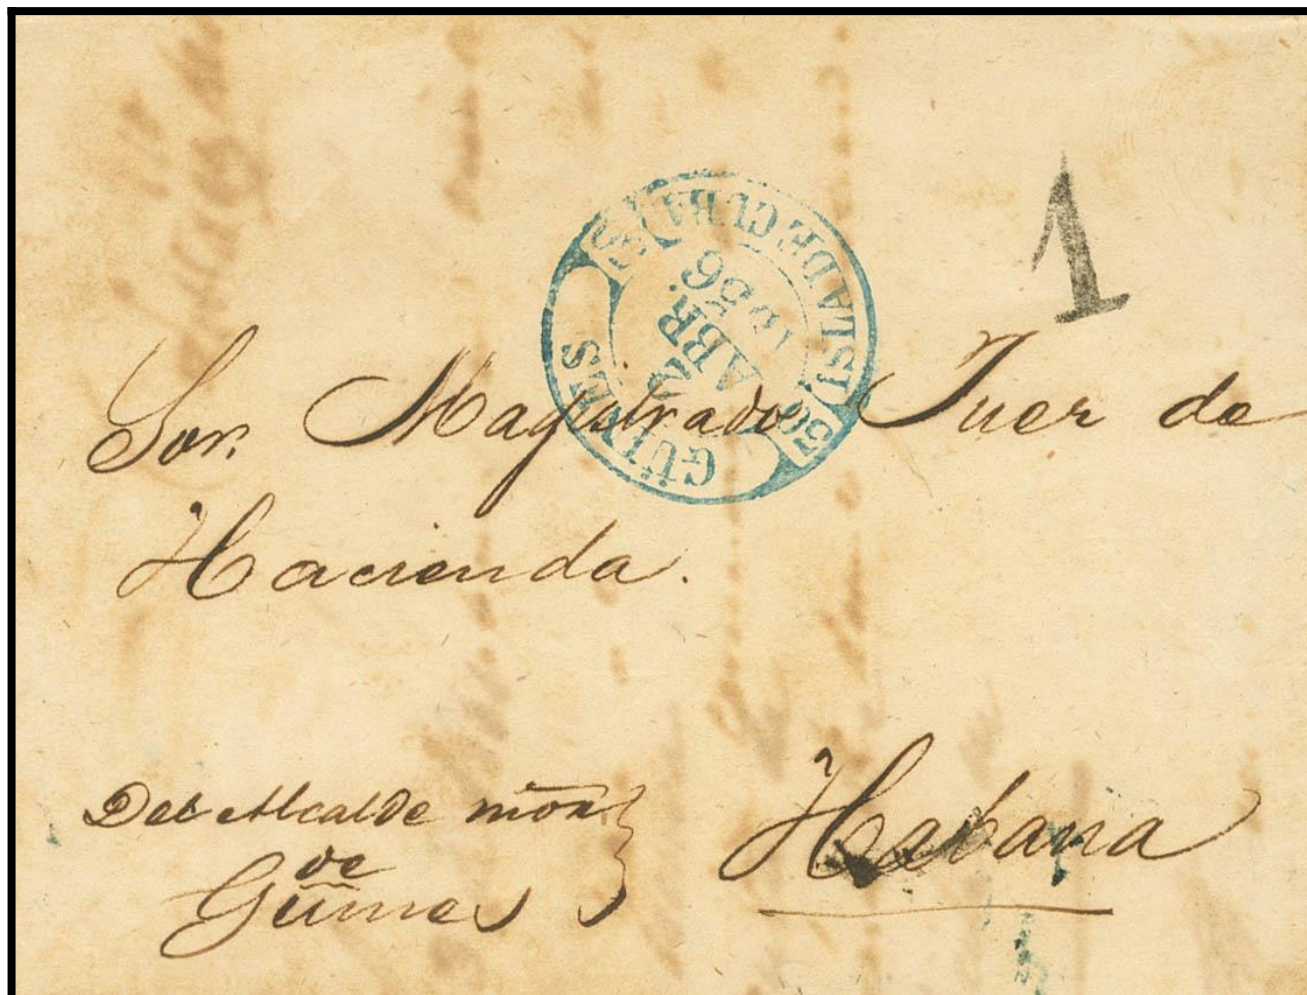 1
GÜINES
ISLA DE CUBA
2
ABR.
1856
Sor. Magistrado Juez de
Hacienda.
Del Alcalde
de
Güines
Habana